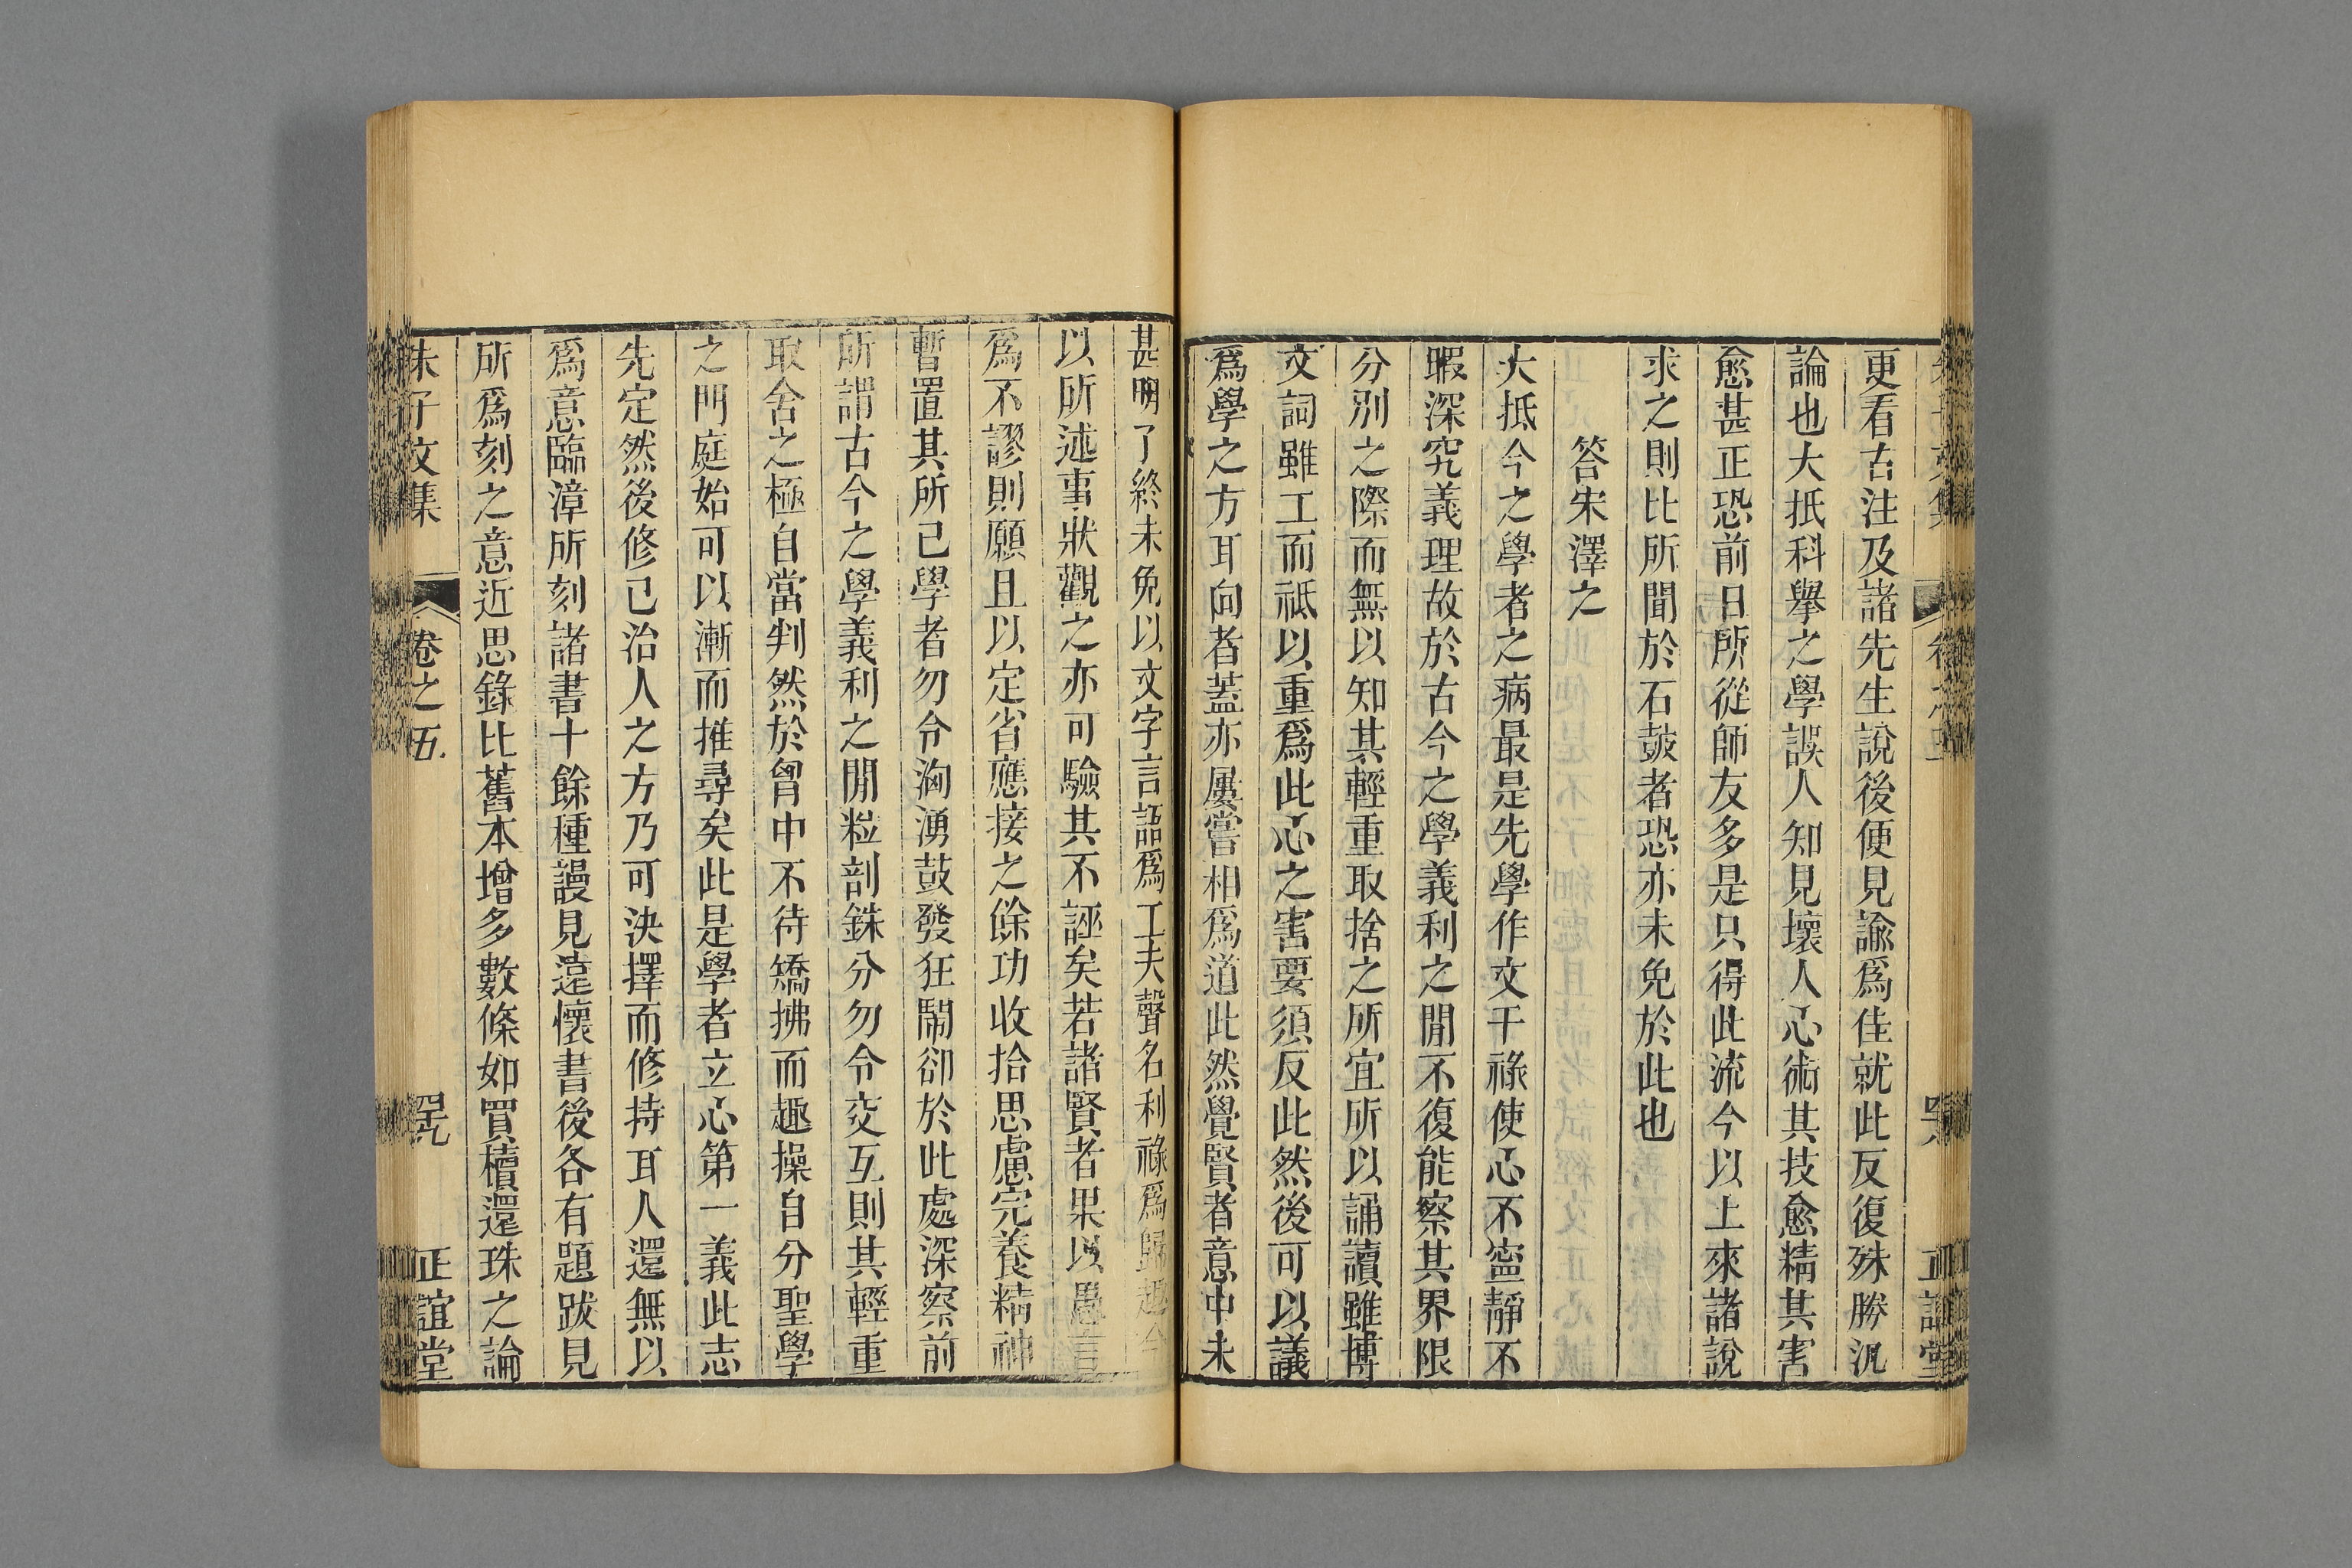 更看古注及諸先生說後便見諭爲佳就此反復殊勝汎
論也大抵科擧之學誤人知見壞人心術其技愈精其害
愈甚正恐前日所從師友多是只得此流今以上來諸說
求之則比所聞於石鼓者恐亦未免於此也
答宋澤之
大抵今之學者之病最是先學作文干祿使心不寧靜不
暇深究義理故於古今之學義利之閒不復能察其界限
分別之際而無以知其輕重取捨之所宜所以誦讀雖博
文詞雖工而祗以重爲此心之害要須反此然後可以議
爲學之方耳向者蓋亦屢嘗相爲道此然覺賢者意中未
甚明了終未免以文字言語爲工夫聲名利祿爲歸趣今
以所述事狀觀之亦可驗其不誣矣若諸賢者果以愚言
爲不謬則願且以定省應接之餘功收拾思慮完養精神
暫置其所已學者勿令洶湧鼓發狂鬧卻於此處深察前
所謂古今之學義利之閒粒剖銖分勿令交互則其輕重
取舍之極自當判然於胷中不待矯拂而趣操自分聖學
之門庭始可以漸而推尋矣此是學者立心第一義此志
先定然後修己治人之方乃可決擇而修持耳人還無以
爲意臨漳所刻諸書十餘種謾見遠懷書後各有題跋見
所爲刻之意近思錄比舊本增多數條如買櫝還珠之論
朱子文集 卷之五 正誼堂